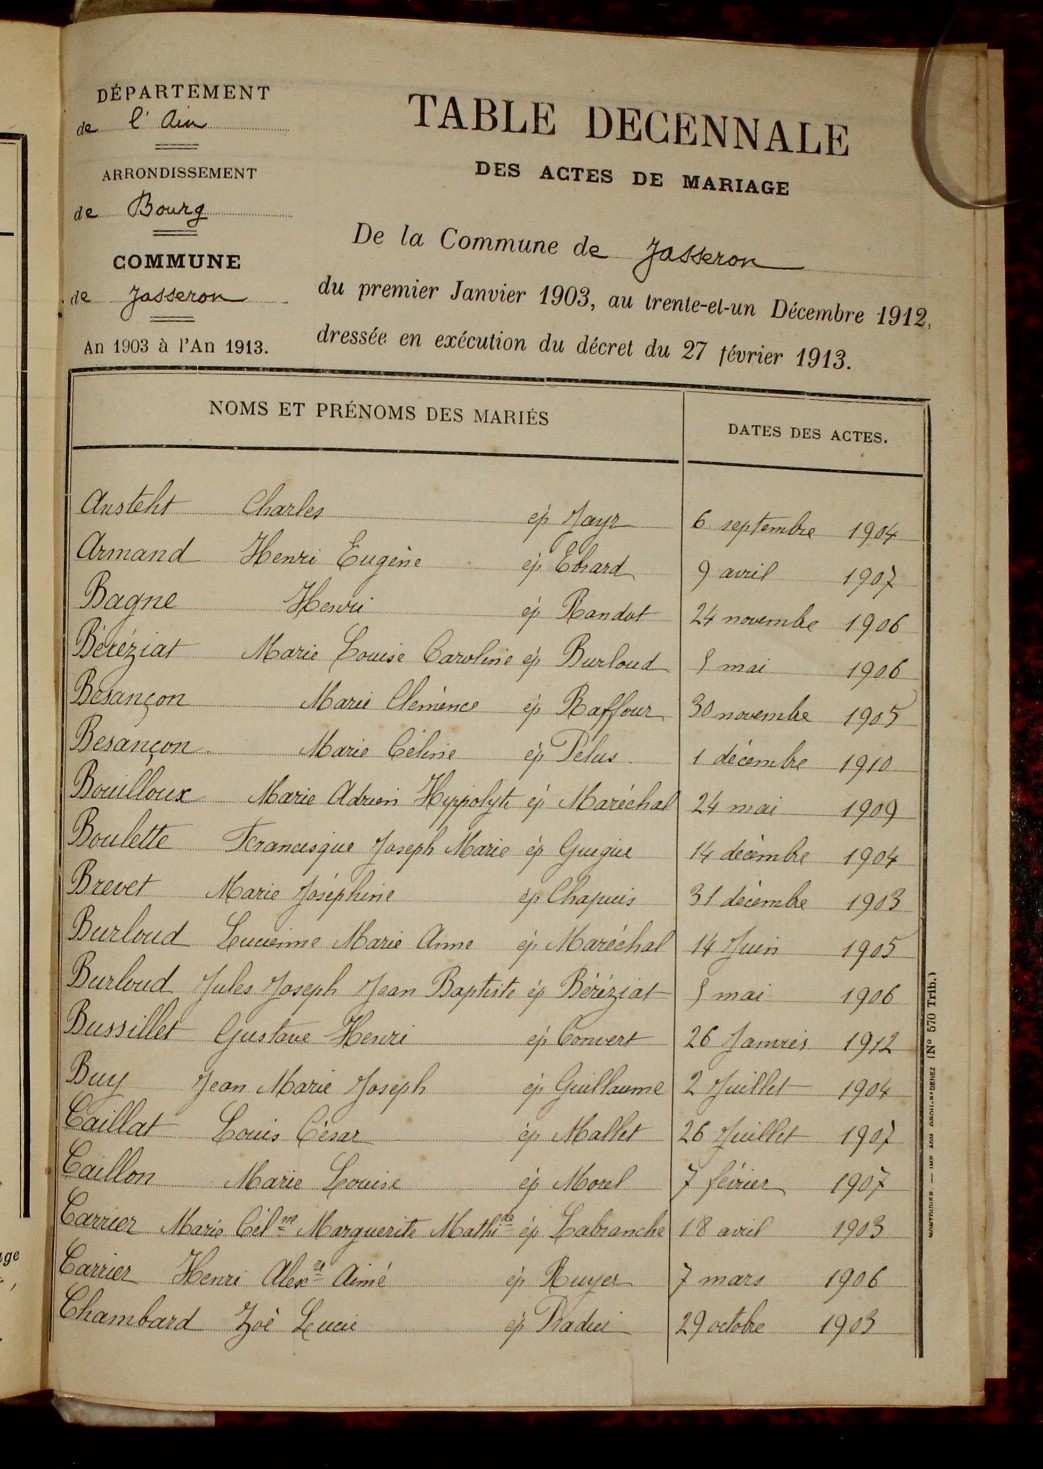 DÉPARTEMENT
de l'Ain
ARRONDISSEMENT
de Bourg
COMMUNE
de Jasseron
An 1903 à l'An 1913.
TABLE DECENNALE
DES ACTES DE MARIAGE
De la Commune de Jasseron
du premier Janvier 1903, au trente-et-un Décembre 1912,
dressée en exécution du décret du 27 février 1913.
NOMS ET PRÉNOMS DES MARIÉS DATES DES ACTES.
Ansteht Charles ép Jayr 6 septembre 1904
Armand Henri Eugène ép Ebrard 9 avril 1907
Bagne Henri ép Randot 24 novembre 1906
Béréziat Marie Louise Caroline ép Burloud 5 mai 1906
Besançon Marie Clémence ép Raffour 30 novembre 1905
Besançon Marie Céline ép Pélus 1 décembre 1910
Bouilloux Marie Adrien Hyppolyte ép Maréchal 24 mai 1909
Boulette Francisque Joseph Marie ép Guigue 14 décembre 1904
Brevet Marie Joséphine ép Chapuis 31 décembre 1903
Burloud Lucienne Marie Anne ép Maréchal 14 Juin 1905
Burloud Jules Joseph Jean Baptiste ép Béréziat 5 mai 1906
Bussillet Gustave Henri ép Convert 26 Janvier 1912
Buy Jean Marie Joseph ép Guillaume 2 Juillet 1904
Caillat Louis César ép Mallet 26 Juillet 1907
Caillon Marie Louise ép Morel 7 février 1907
Carrier Marie Cél<sup>ne</sup> Marguerite Mathi<sup>de</sup> ép Labranche 18 avril 1903
Carrier Henri Alex Aimé ép Ruyer 7 mars 1906
Chambard Zoé Lucie ép Radici 29 octobre 1903
(N° 570 Trib.)